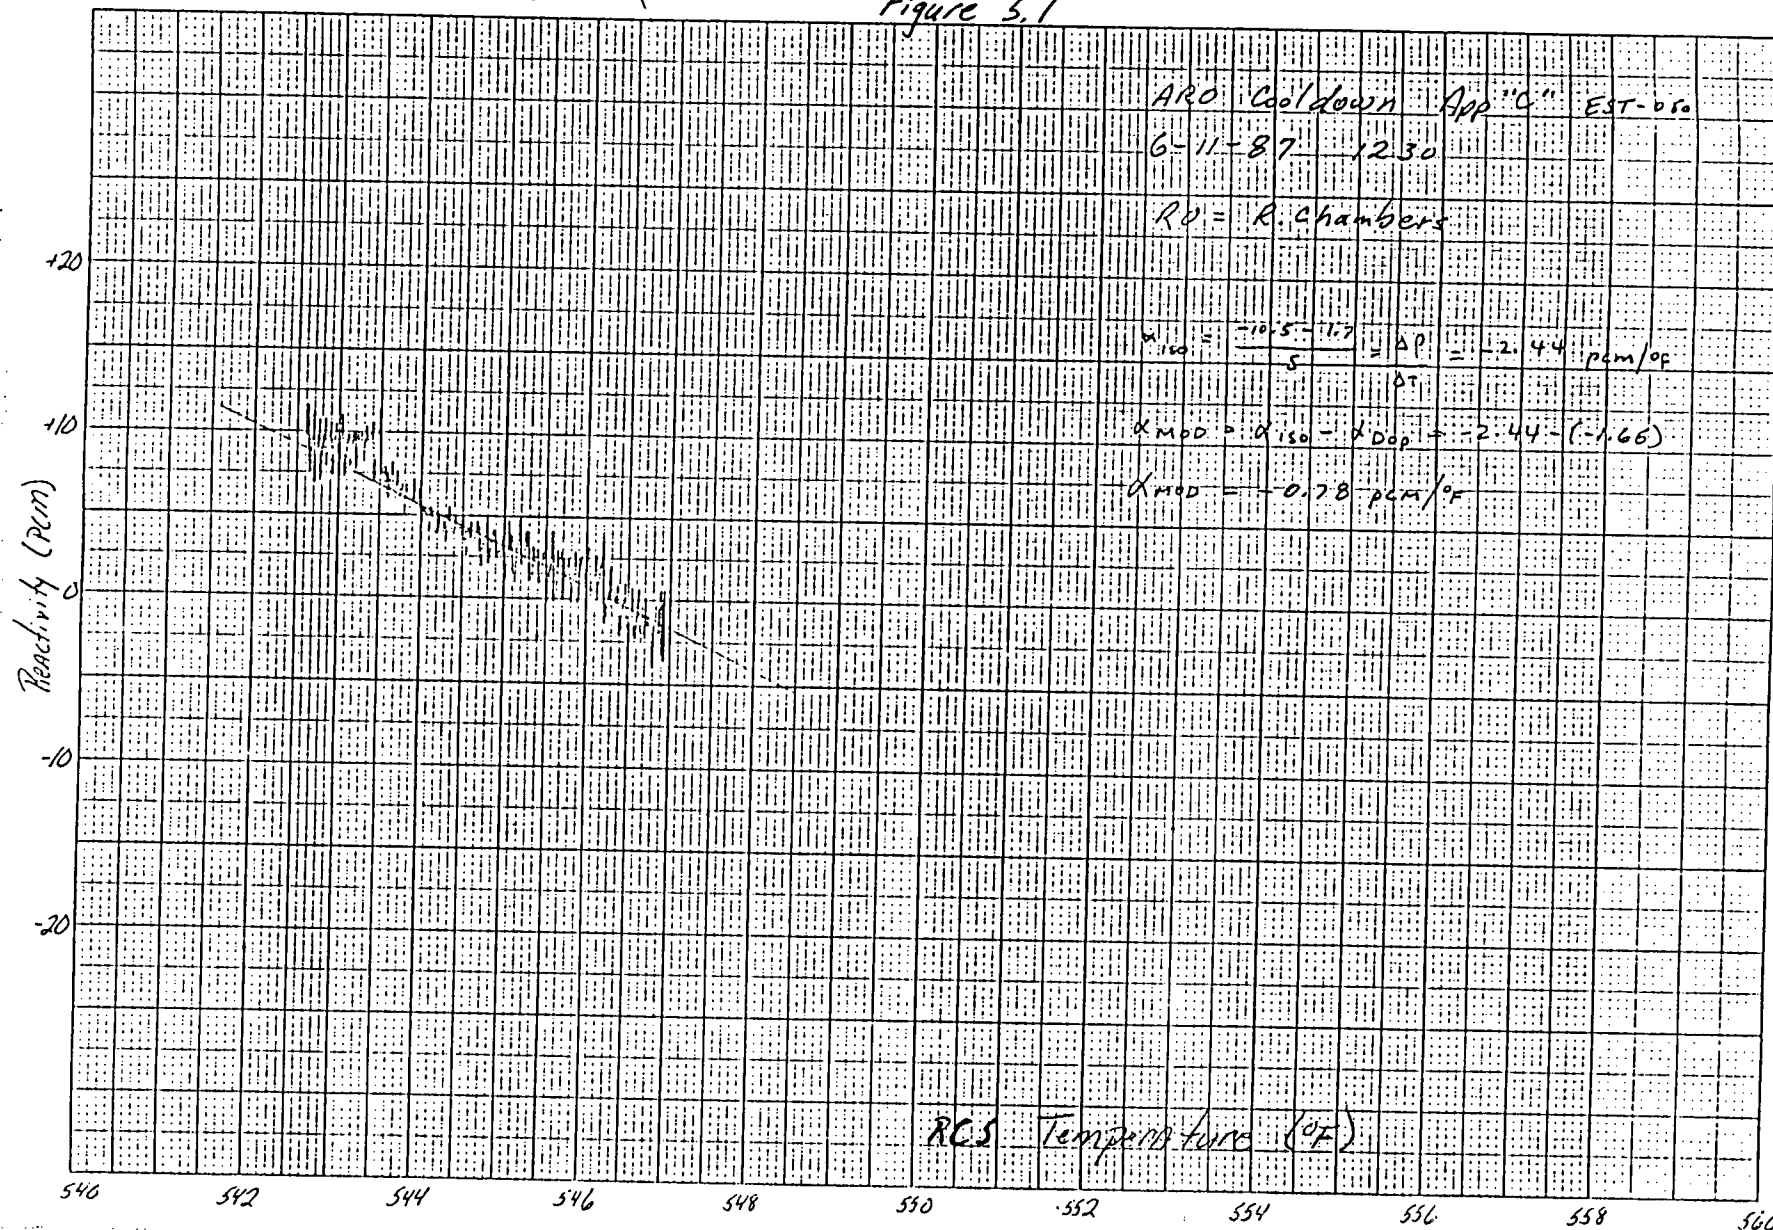 Figure 5.1
ARO Cooldown App "C" EST-050
6-11-87 1230
RO = R. Chambers
α iso = -10.5 - 1.7 / 5 = Δρ / ΔT = -2.44 pcm/°F
α MOD = α iso - α Dop = -2.44 - (-1.66)
α MOD = -0.78 pcm/°F
+20
+10
0
-10
-20
Reactivity (pcm)
RCS Temperature (°F)
540 542 544 546 548 550 552 554 556 558 560